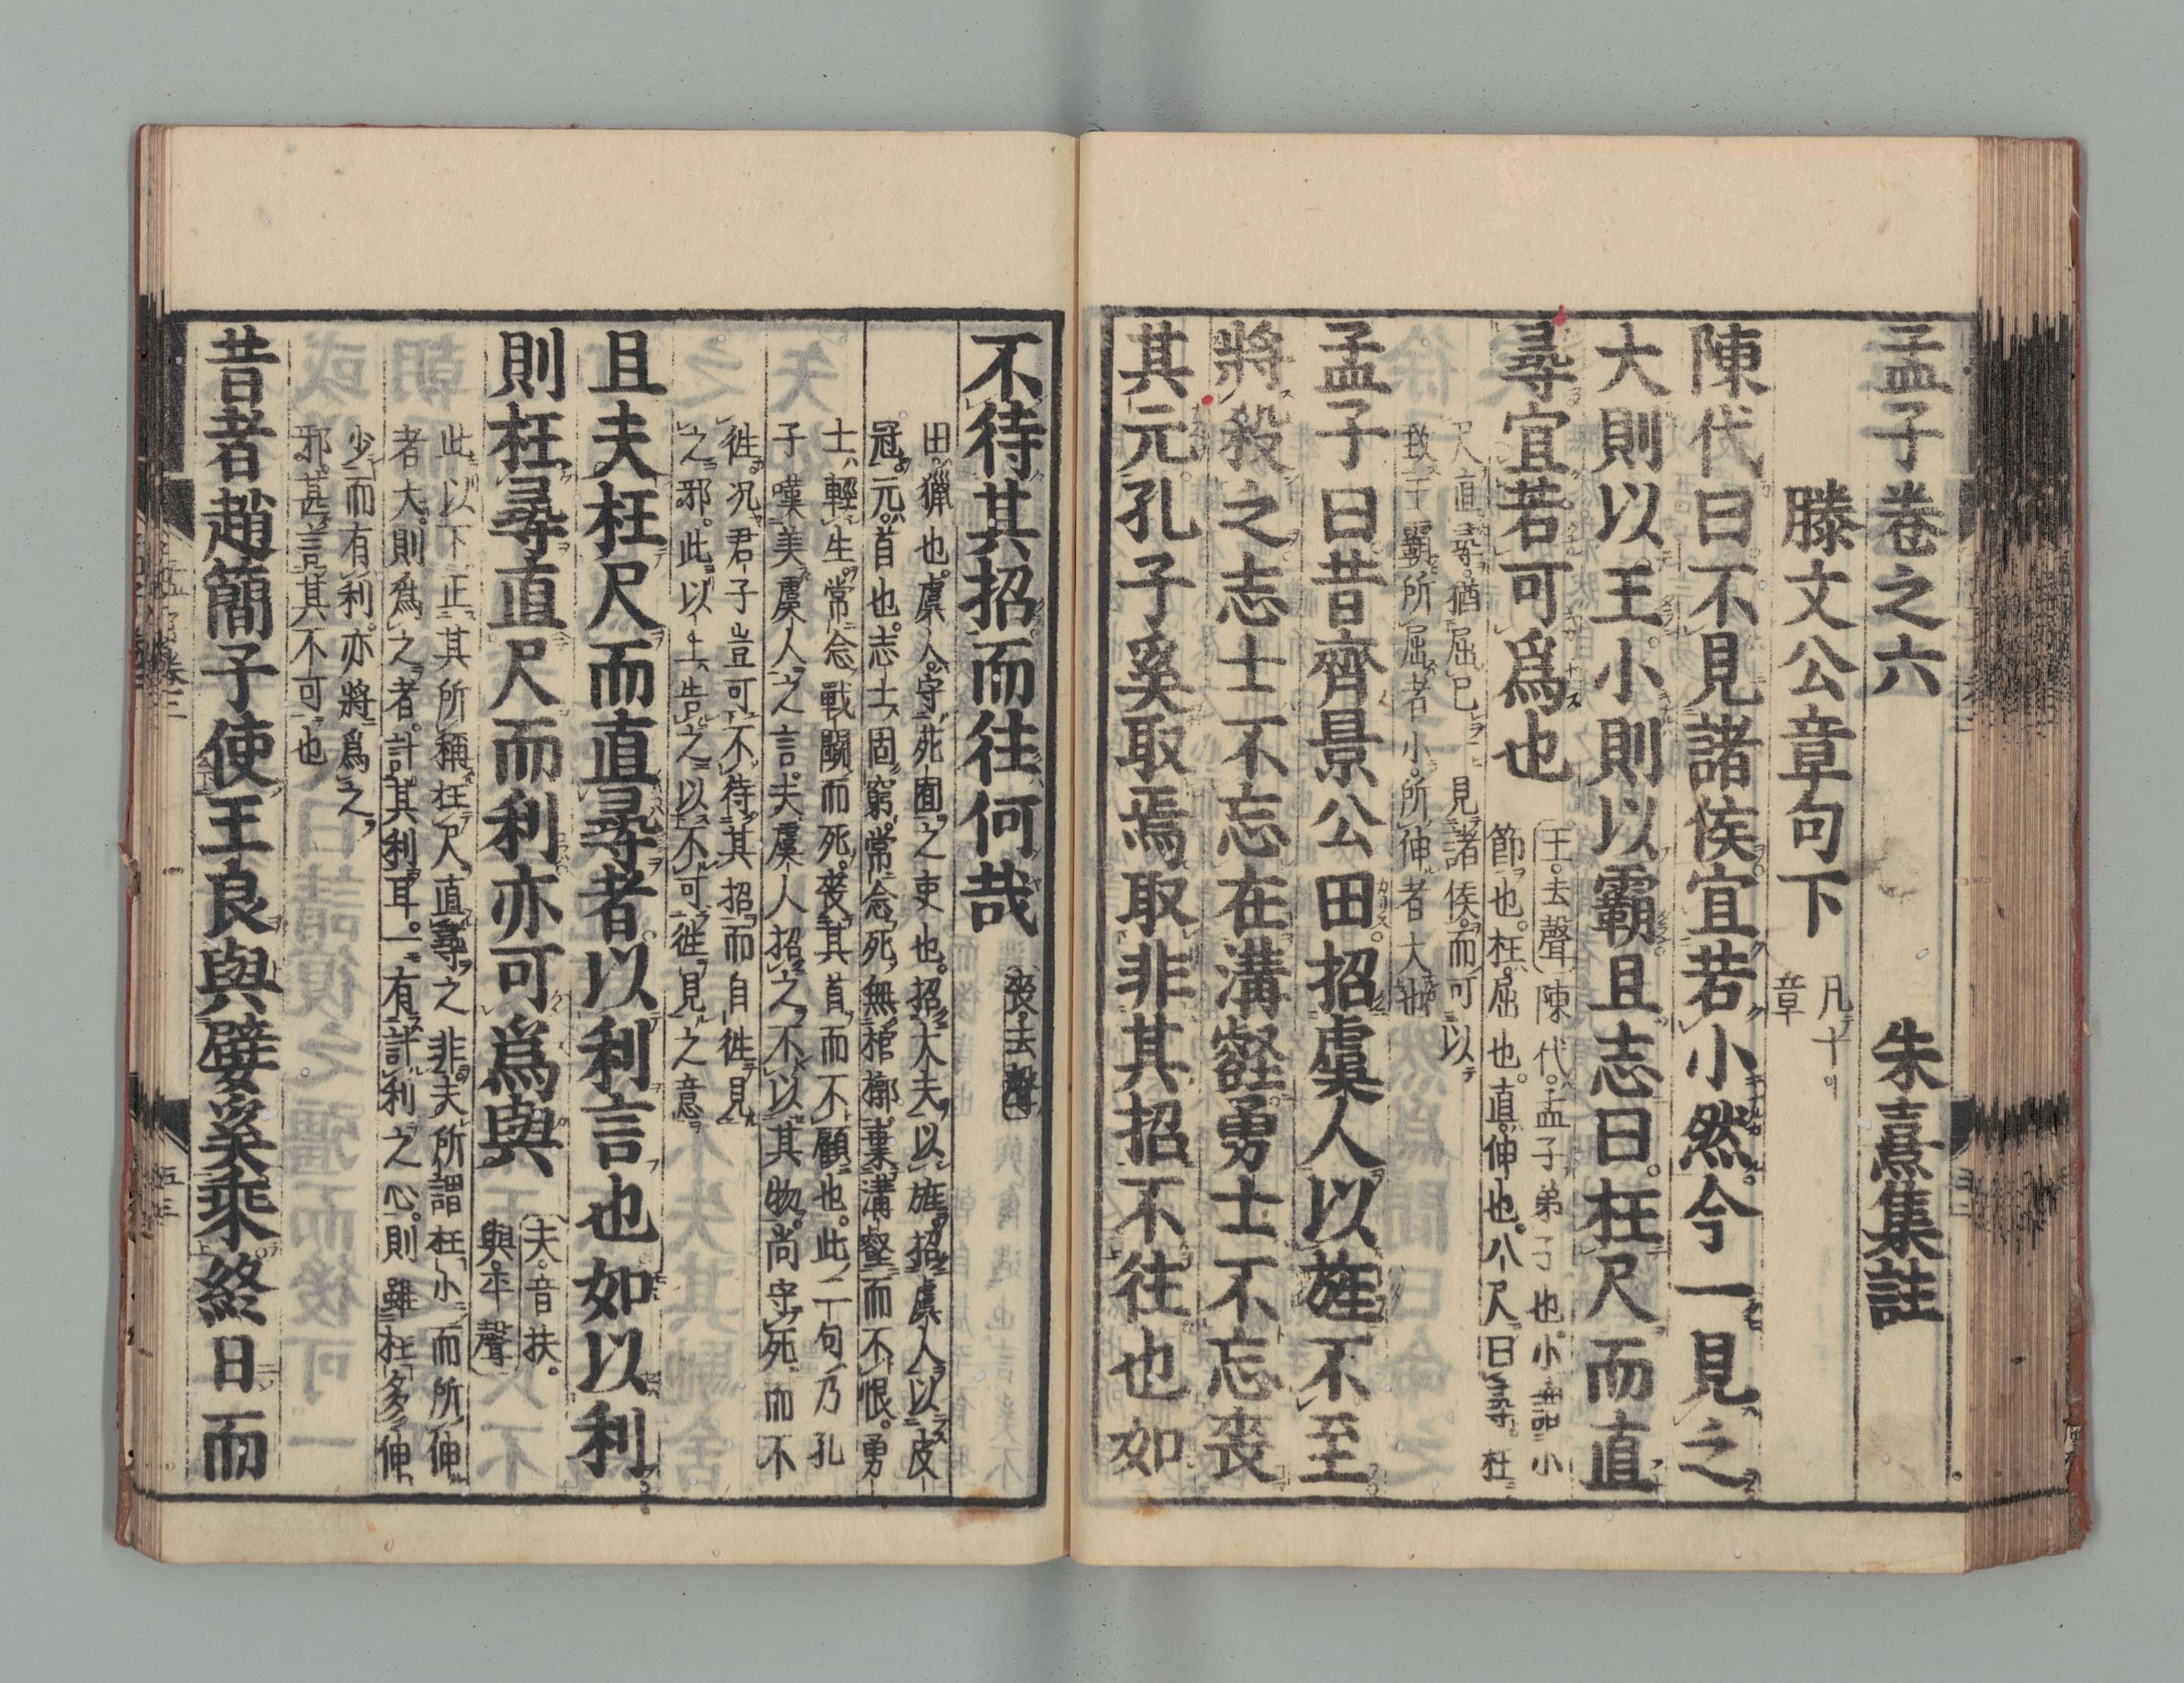 孟子卷之六　朱熹集註
滕文公章句下
凡十
章
陳代曰不見諸侯宜若小然今一見之
大則以王小則以霸且志曰枉尺而直
尋宜若可爲也
王去聲陳代孟子弟子也小謂小
節也枉屈也直伸也八尺曰尋枉
尺直尋猶屈己見諸侯而可以
致王霸所屈者小所伸者大也
孟子曰昔齊景公田招虞人以旌不至
將殺之志士不忘在溝壑勇士不忘喪
其元孔子奚取焉取非其招不往也如
不待其招而往何哉
喪去聲
田獵也虞人守苑囿之吏也招大夫以旌招虞人以皮
冠元首也志士固窮常念死無棺槨棄溝壑而不恨勇
士輕生常念戰鬭而死喪其首而不顧也此二句乃孔
子嘆美虞人之言夫虞人招之不以其物尚守死而不
徃况君子豈可不待其招而自徃見
之邪此以上告之以不可徃見之意
且夫枉尺而直尋者以利言也如以利
則枉尋直尺而利亦可爲與
夫音扶
與平聲
此以下正其所稱枉尺直尋之非夫所謂枉小而所伸
者大則爲之者計其利耳一有計利之心則雖枉多伸
少而有利亦將爲之
邪甚言其不可也
昔者趙簡子使王良與嬖奚乘終日而